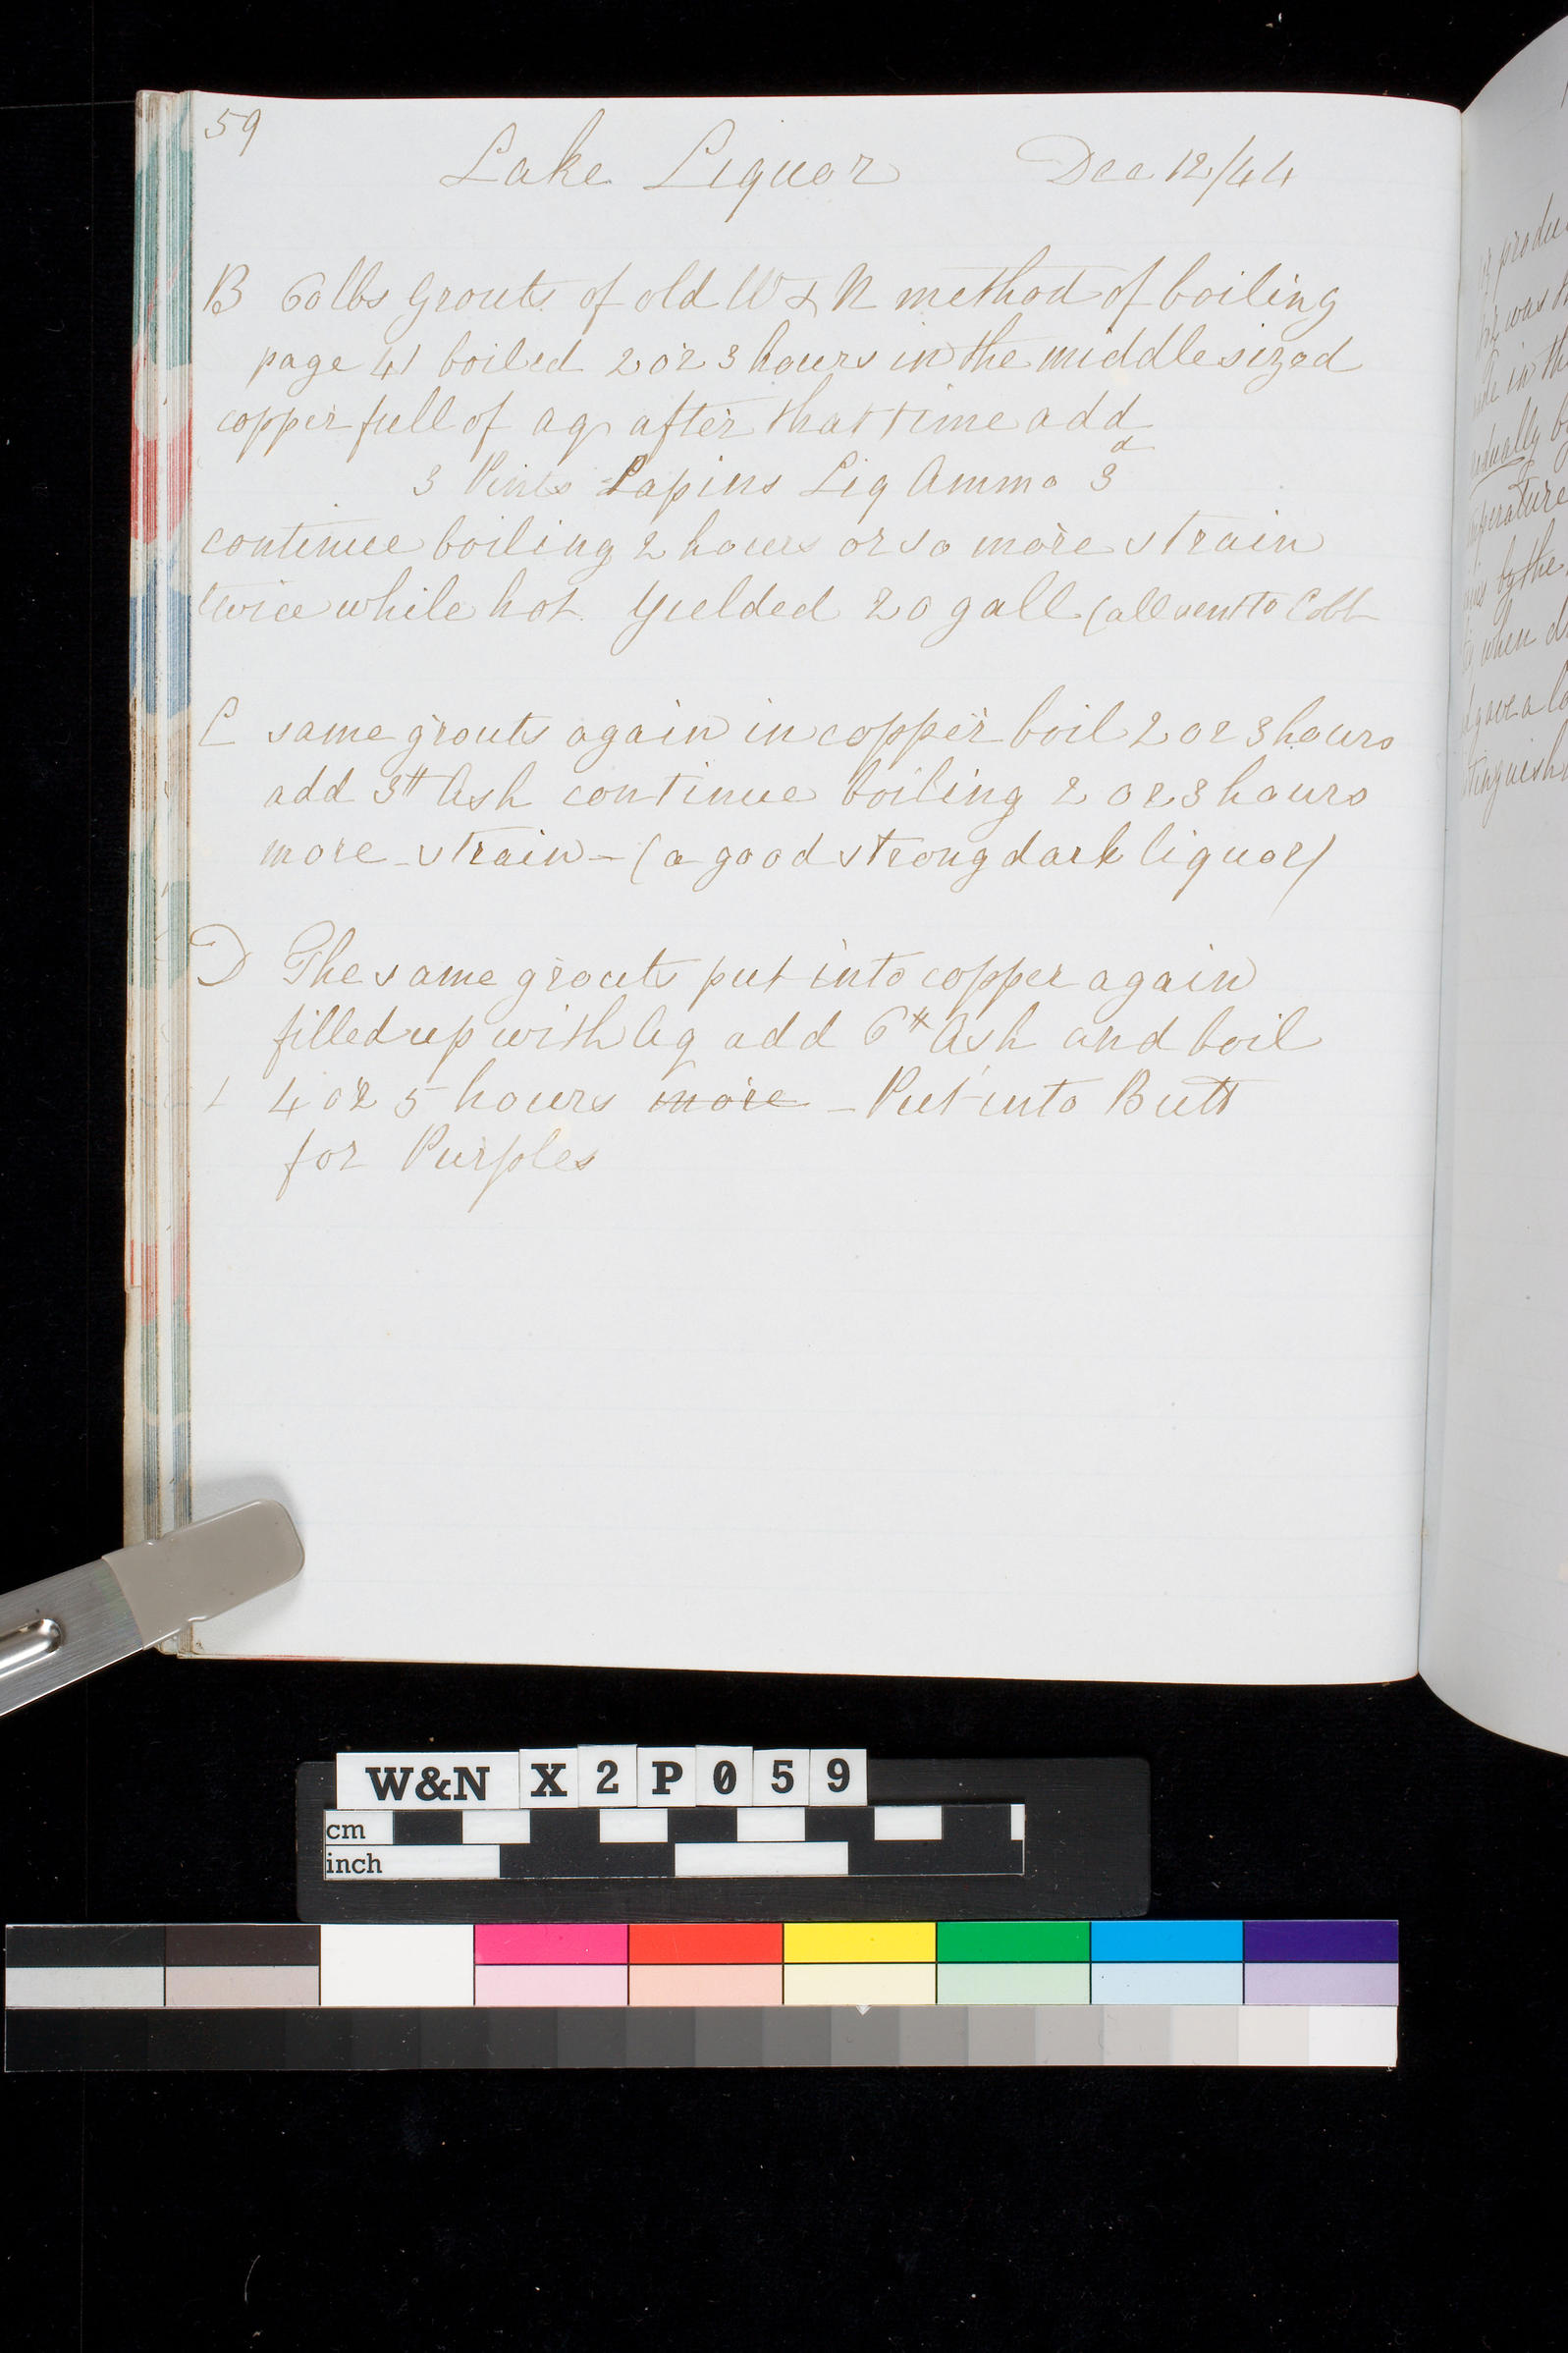 59
Lake Liquor Dec 12/44
B 60lbs Grouts of old W & N method of boiling
page 41 boiled 2 or 3 hours in the middle sized
copper full of aq after that time add
3 Pints Lapins Liq Ammo 3 a
continue boiling 2 hours or so more strain
twice while hot. Yielded 20 gall (all sent to Cobb
C same grouts again in copper boil 2 or 3 hours
add 3# Ash continue boiling 2 or 3 hours
more - strain - (a good strong dark liquor)
D The same grouts put into copper again
filled up with Aq add 6# Ash and boil
4 or 5 hours more - Put into Butt
for Purples
produ
was
in th
adually
perature
by the
when d
gave a
tinguish
W&N X2P059
cm
inch